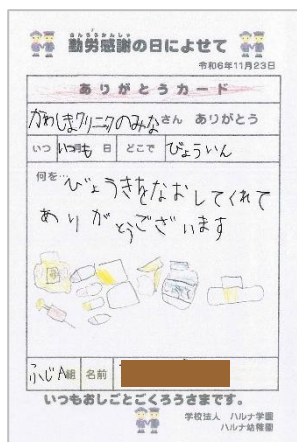 勤労感謝の日によせて
きんろうかんしゃ
令和6年11月23日
ありがとうカード
かわしまクリニックのみなさん ありがとう
いつ いつも 月 日 どこで びょういん
何を… びょうきをなおしてくれて
ありがとうございます
ふじA組 名前
いつもおしごとごくろうさまです。
学校法人 ハルナ学園
ハルナ幼稚園